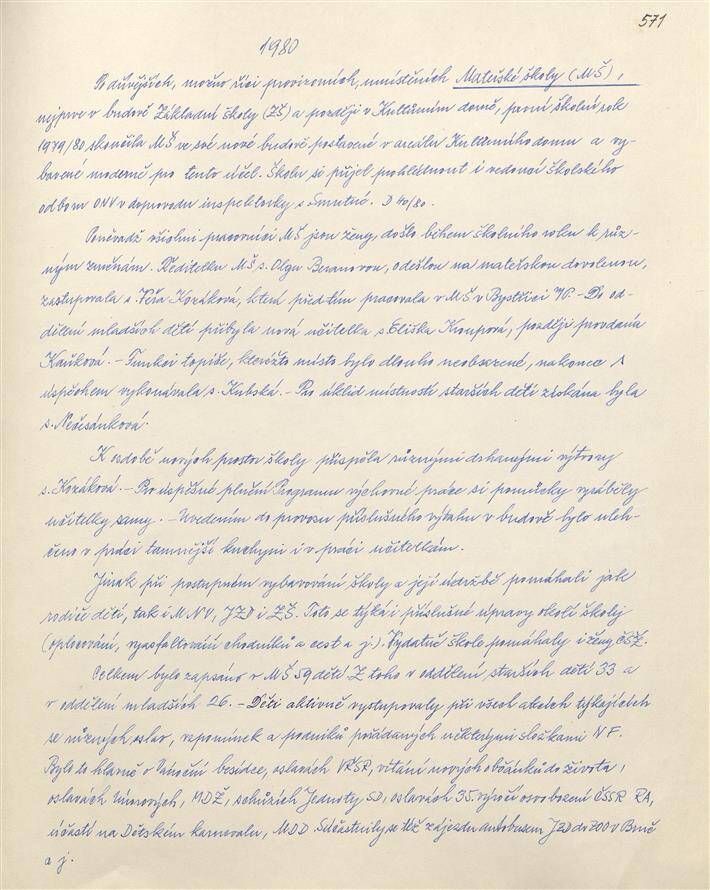 571
1980
Po dřívějších, možno říci provizorních, umístěních Mateřské školy (MŠ),
nejprve v budově Základní školy (ZŠ) a později v Kulturním domě, první školní rok
1979/80 skončila MŠ ve své nové budově postavené v areálu Kulturního domu a vy-
bavené moderně pro tento účel. Školu si přijel prohlédnout i vedoucí školského
odboru ONV v doprovodu inspektorky s. Smutné. D 40/80.
Poněvadž všichni pracovníci MŠ jsou ženy, došlo během školního roku k růz-
ným změnám. Ředitelku MŠ s. Olgu Beranovou, odešlou na mateřskou dovolenou,
zastupovala s. Věra Kozáková, která předtím pracovala v MŠ v Bystřici n/P. - Do od-
dělení mladších dětí přibyla nová učitelka s. Eliška Kroupová, později provdaná
Kaňková. - Funkci topiče, kteréžto místo bylo dlouho neobsazené, nakonec s
úspěchem vykonávala s. Kubská. - Pro úklid místností starších dětí získána byla
s. Nečesánková.
K ozdobě nových prostor školy přispěla různými drhanými výtvory
s. Kozáková. - Pro úspěšné plnění Programu výchovné práce si pomůcky vyráběly
učitelky samy. - Uvedením do provozu příslušného výtahu v budově bylo uleh-
čeno v práci tamnější kuchyni i v práci učitelkám.
Jinak při postupném vybavování školy a její údržbě pomáhali jak
rodiče dětí, tak i MNV, JZD i ZŠ. Toto se týká i příslušné úpravy okolí školy
(oplocování, vyasfaltování chodníků a cest a j.). Vydatně škole pomáhaly i ženy ČSŽ.
Celkem bylo zapsáno v MŠ 59 dětí. Z toho v oddělení starších dětí 33 a
v oddělení mladších 26. - Děti aktivně vystupovaly při všech akcích týkajících
se různých oslav, vzpomínek a podniků pořádaných některými složkami NF.
Bylo to hlavně o Vánoční besídce, oslavách VŘSR, vítání nových občánků do života,
oslavách Únorových, MDŽ, schůzích Jednoty SD, oslavách 35. výročí osvobození ČSSR RA,
účastí na Dětském karnevalu, MDD. Súčastnily se též zájezdu autobusem JZD do ZOO v Brně
a j.